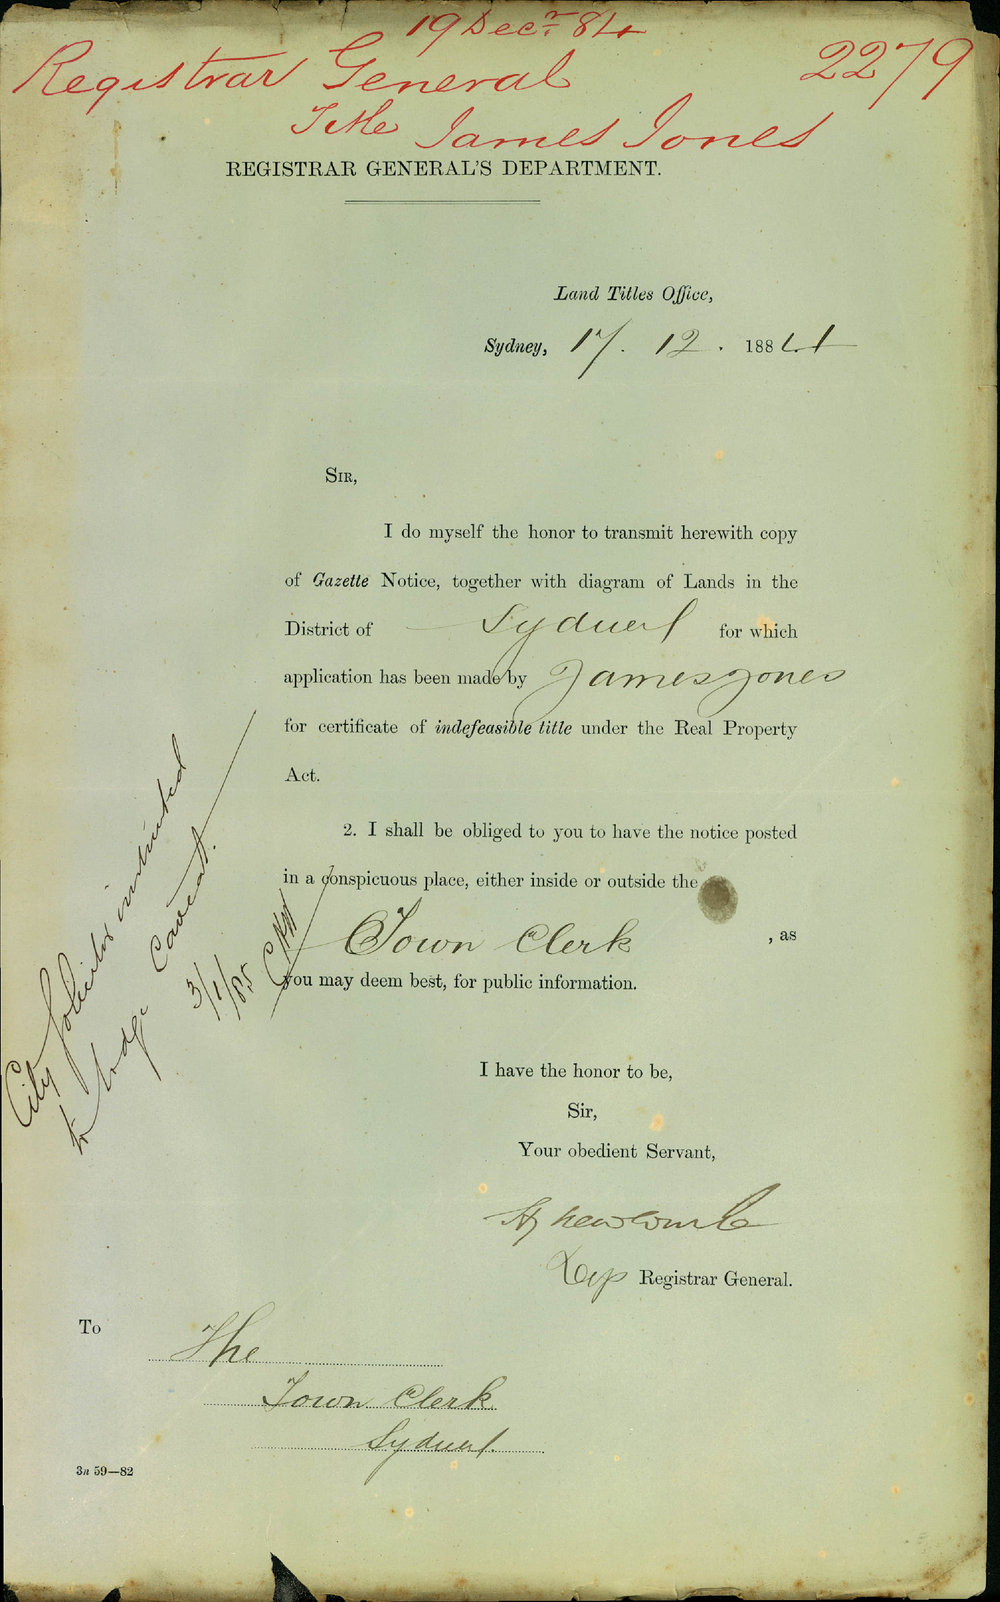 19 Decr 84
Registrar General 2279
Title James Jones
REGISTRAR GENERAL'S DEPARTMENT.
Land Titles Office,
Sydney, 17. 12. 1884
SIR,
I do myself the honor to transmit herewith copy
of Gazette Notice, together with diagram of Lands in the
District of Sydney for which
application has been made by James Jones
for certificate of indefeasible title under the Real Property
Act.
2. I shall be obliged to you to have the notice posted
in a conspicuous place, either inside or outside the
Town Clerk , as
you may deem best, for public information.
City Solicitor instructed
to lodge Caveat.
3/1/85
I have the honor to be,
Sir,
Your obedient Servant,
Newcombe
Dep Registrar General.
To
The
Town Clerk
Sydney.
3n 59—82